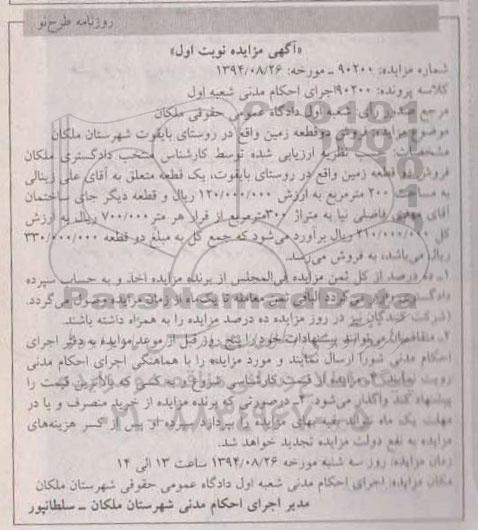 روزنامه طرح‌نو
«آگهی مزایده نوبت اول»
شماره مزایده: ۹۰۲۰۰ ـ مورخه: ۱۳۹۴/۰۸/۲۶
کلاسه پرونده: ۹۰۲۰۰اجرای احکام مدنی شعبه اول
مرجع صدور رای: شعبه اول دادگاه عمومی حقوقی ملکان
موضوع مزایده: فروش دوقطعه زمین واقع در روستای بایقوت شهرستان ملکان
مشخصات: حسب نظریه ارزیابی شده توسط کارشناس منتخب دادگستری ملکان
فروش دو قطعه زمین واقع در روستای بایقوت، یک قطعه متعلق به آقای علی زینالی
به مساحت ۲۰۰ مترمربع به ارزش ۱۲۰/۰۰۰/۰۰۰ ریال و قطعه دیگر جای ساختمان
آقای فاضلی نیا به متراژ ۳۰۰مترمربع از قرار هر متر ۷۰۰/۰۰۰ ریال به ارزش
کل ۲۱۰/۰۰۰/۰۰۰ ریال برآورد می‌شود که جمع کل به مبلغ دو قطعه ۳۳۰/۰۰۰/۰۰۰
ریال می‌باشد، به فروش می‌رسد.
۱ـ ده درصد از کل ثمن مزایده فی‌المجلس از برنده مزایده اخذ و به حساب سپرده
دادگستری واریز می‌گردد الباقی ثمن معامله تا یک‌ماه از زمان مزایده وصول می‌گردد.
(شرکت کنندگان نیز در روز مزایده ده درصد مزایده را به همراه داشته باشند.
۲ـ متقاضیان می‌توانند پیشنهادات خود را پنج روز قبل از موعد مزایده به دفتر اجرای
احکام مدنی شورا ارسال نمایند و مورد مزایده را با هماهنگی اجرای احکام مدنی
رویت نمایند. ۳ـ مزایده از قیمت کارشناسی شروع و به کسی که بالاترین قیمت را
پیشنهاد کند واگذار می‌شود. ۴ـ درصورتی که برنده مزایده از خرید منصرف و یا در
مهلت یک ماه نتواند بقیه بهای مزایده را بپردازد سپرده او پس از کسر هزینه‌های
مزایده به نفع دولت مزایده تجدید خواهد شد.
زمان مزایده: روز سه شنبه مورخه ۱۳۹۴/۰۸/۲۶ ساعت ۱۳ الی ۱۴
مکان مزایده: اجرای احکام مدنی شعبه اول دادگاه عمومی حقوقی شهرستان ملکان
مدیر اجرای احکام مدنی شهرستان ملکان ـ سلطانپور